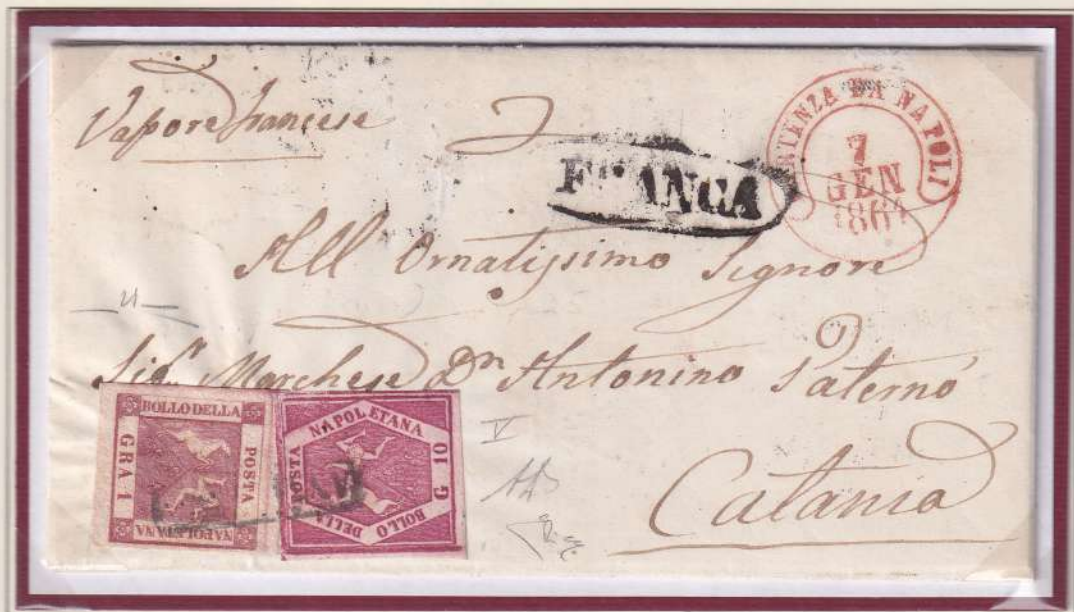 Vapore francese
FRANCA
PARTENZA DA NAPOLI
7
GEN
1861
All' Ornatissimo Signore
Sigr. Marchese Dn Antonino Paternò
Catania
BOLLO DELLA
POSTA
NAPOLETANA
GRA 1
BOLLO
DELLA
POSTA
NAPOLETANA
G 10
V